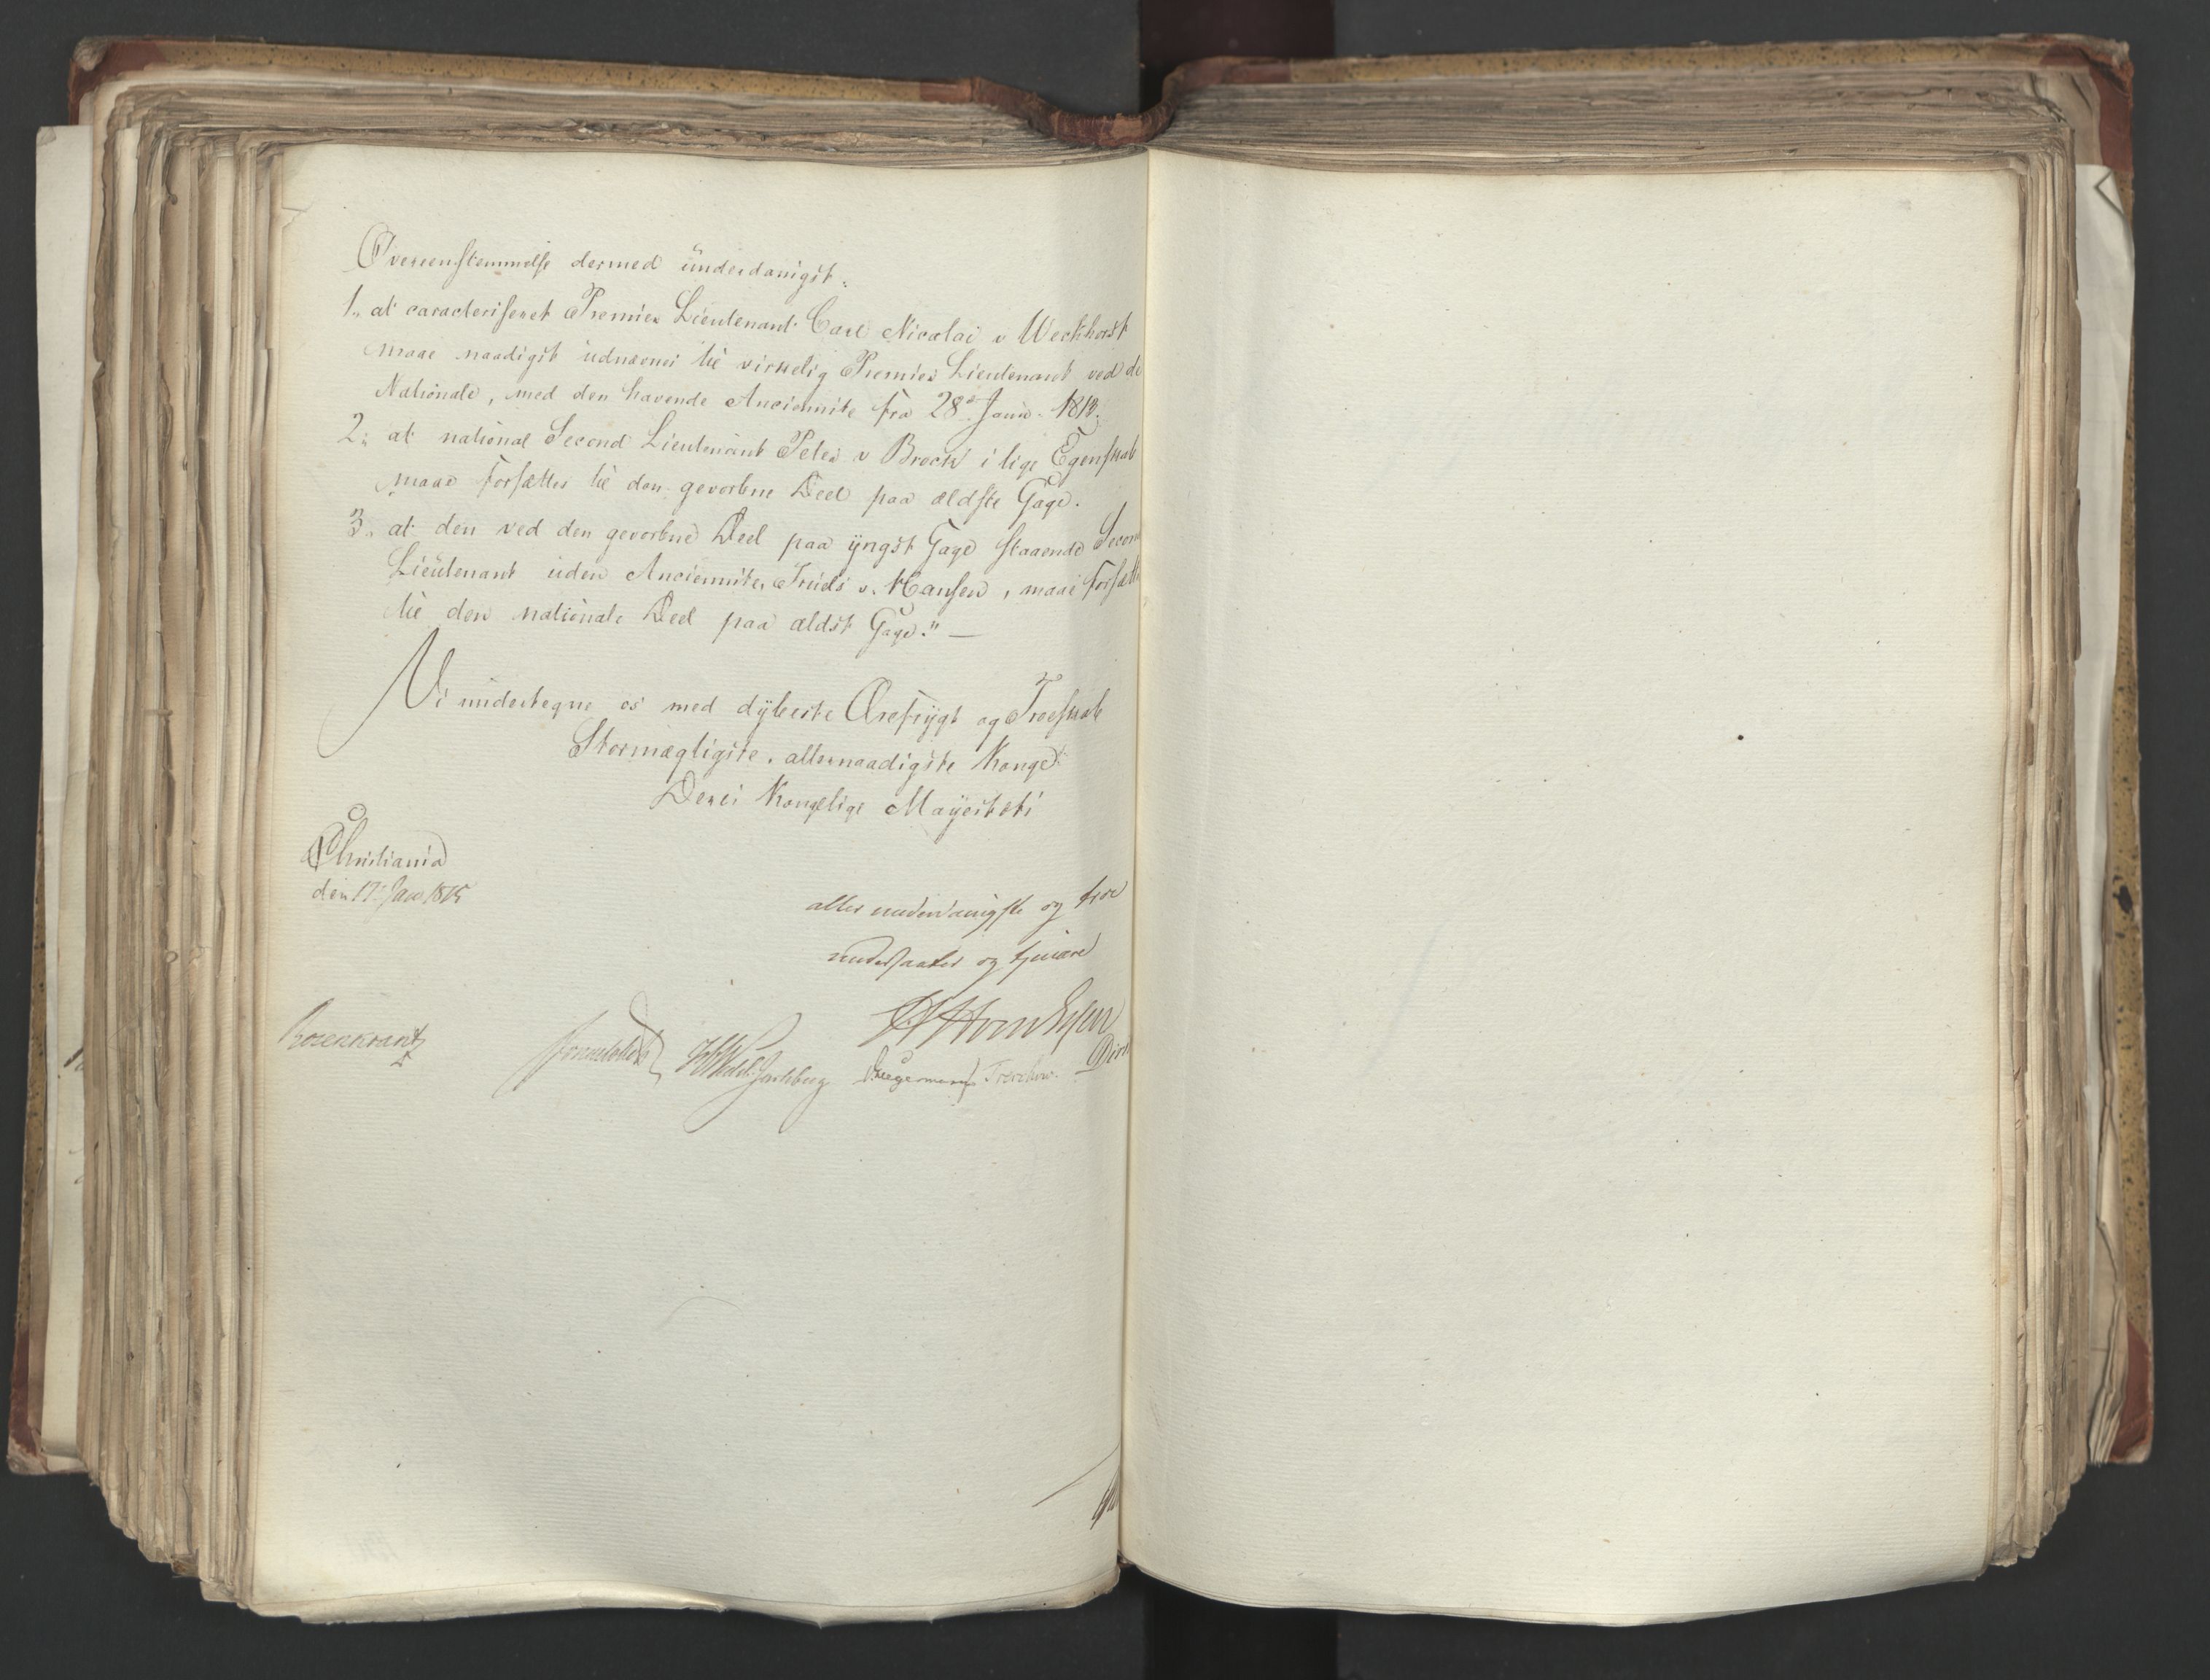 Overeenstemmelse dermed underdanigst:
1., at caracteriseret Premier Lieutenant Carl Nicolai v Weckhorst
maae naadigst udnævnes til virkelig Premier Lieutenant ved de
Nationale, med den havende Anciennite fra 28de Janu.
2; at national Second Lieutenant Peter v Brock i lige Egenskab
maae forsættes til den gevorbne Deel paa ældste Gage.
3., at den ved den gevorbne Deel paa yngst Gage staaende Secon
Lieutenant uden Anciennite, Truls v. Hansen, maae forsætt
til den nationale Deel paa ældst Gage." —
Vi undertegne os med dybeste Ærefrygt og Troeskab
Stormægtigste, allernaadigste Konge
Deres Kongelige Mayestæts
Christiania
den 17: Jan 1815
aller underdanigste og troe
undersaatter og tjenere
Rosenkrantz
Sommerhielm HWedel Jarlsberg Diegermann Treschow.